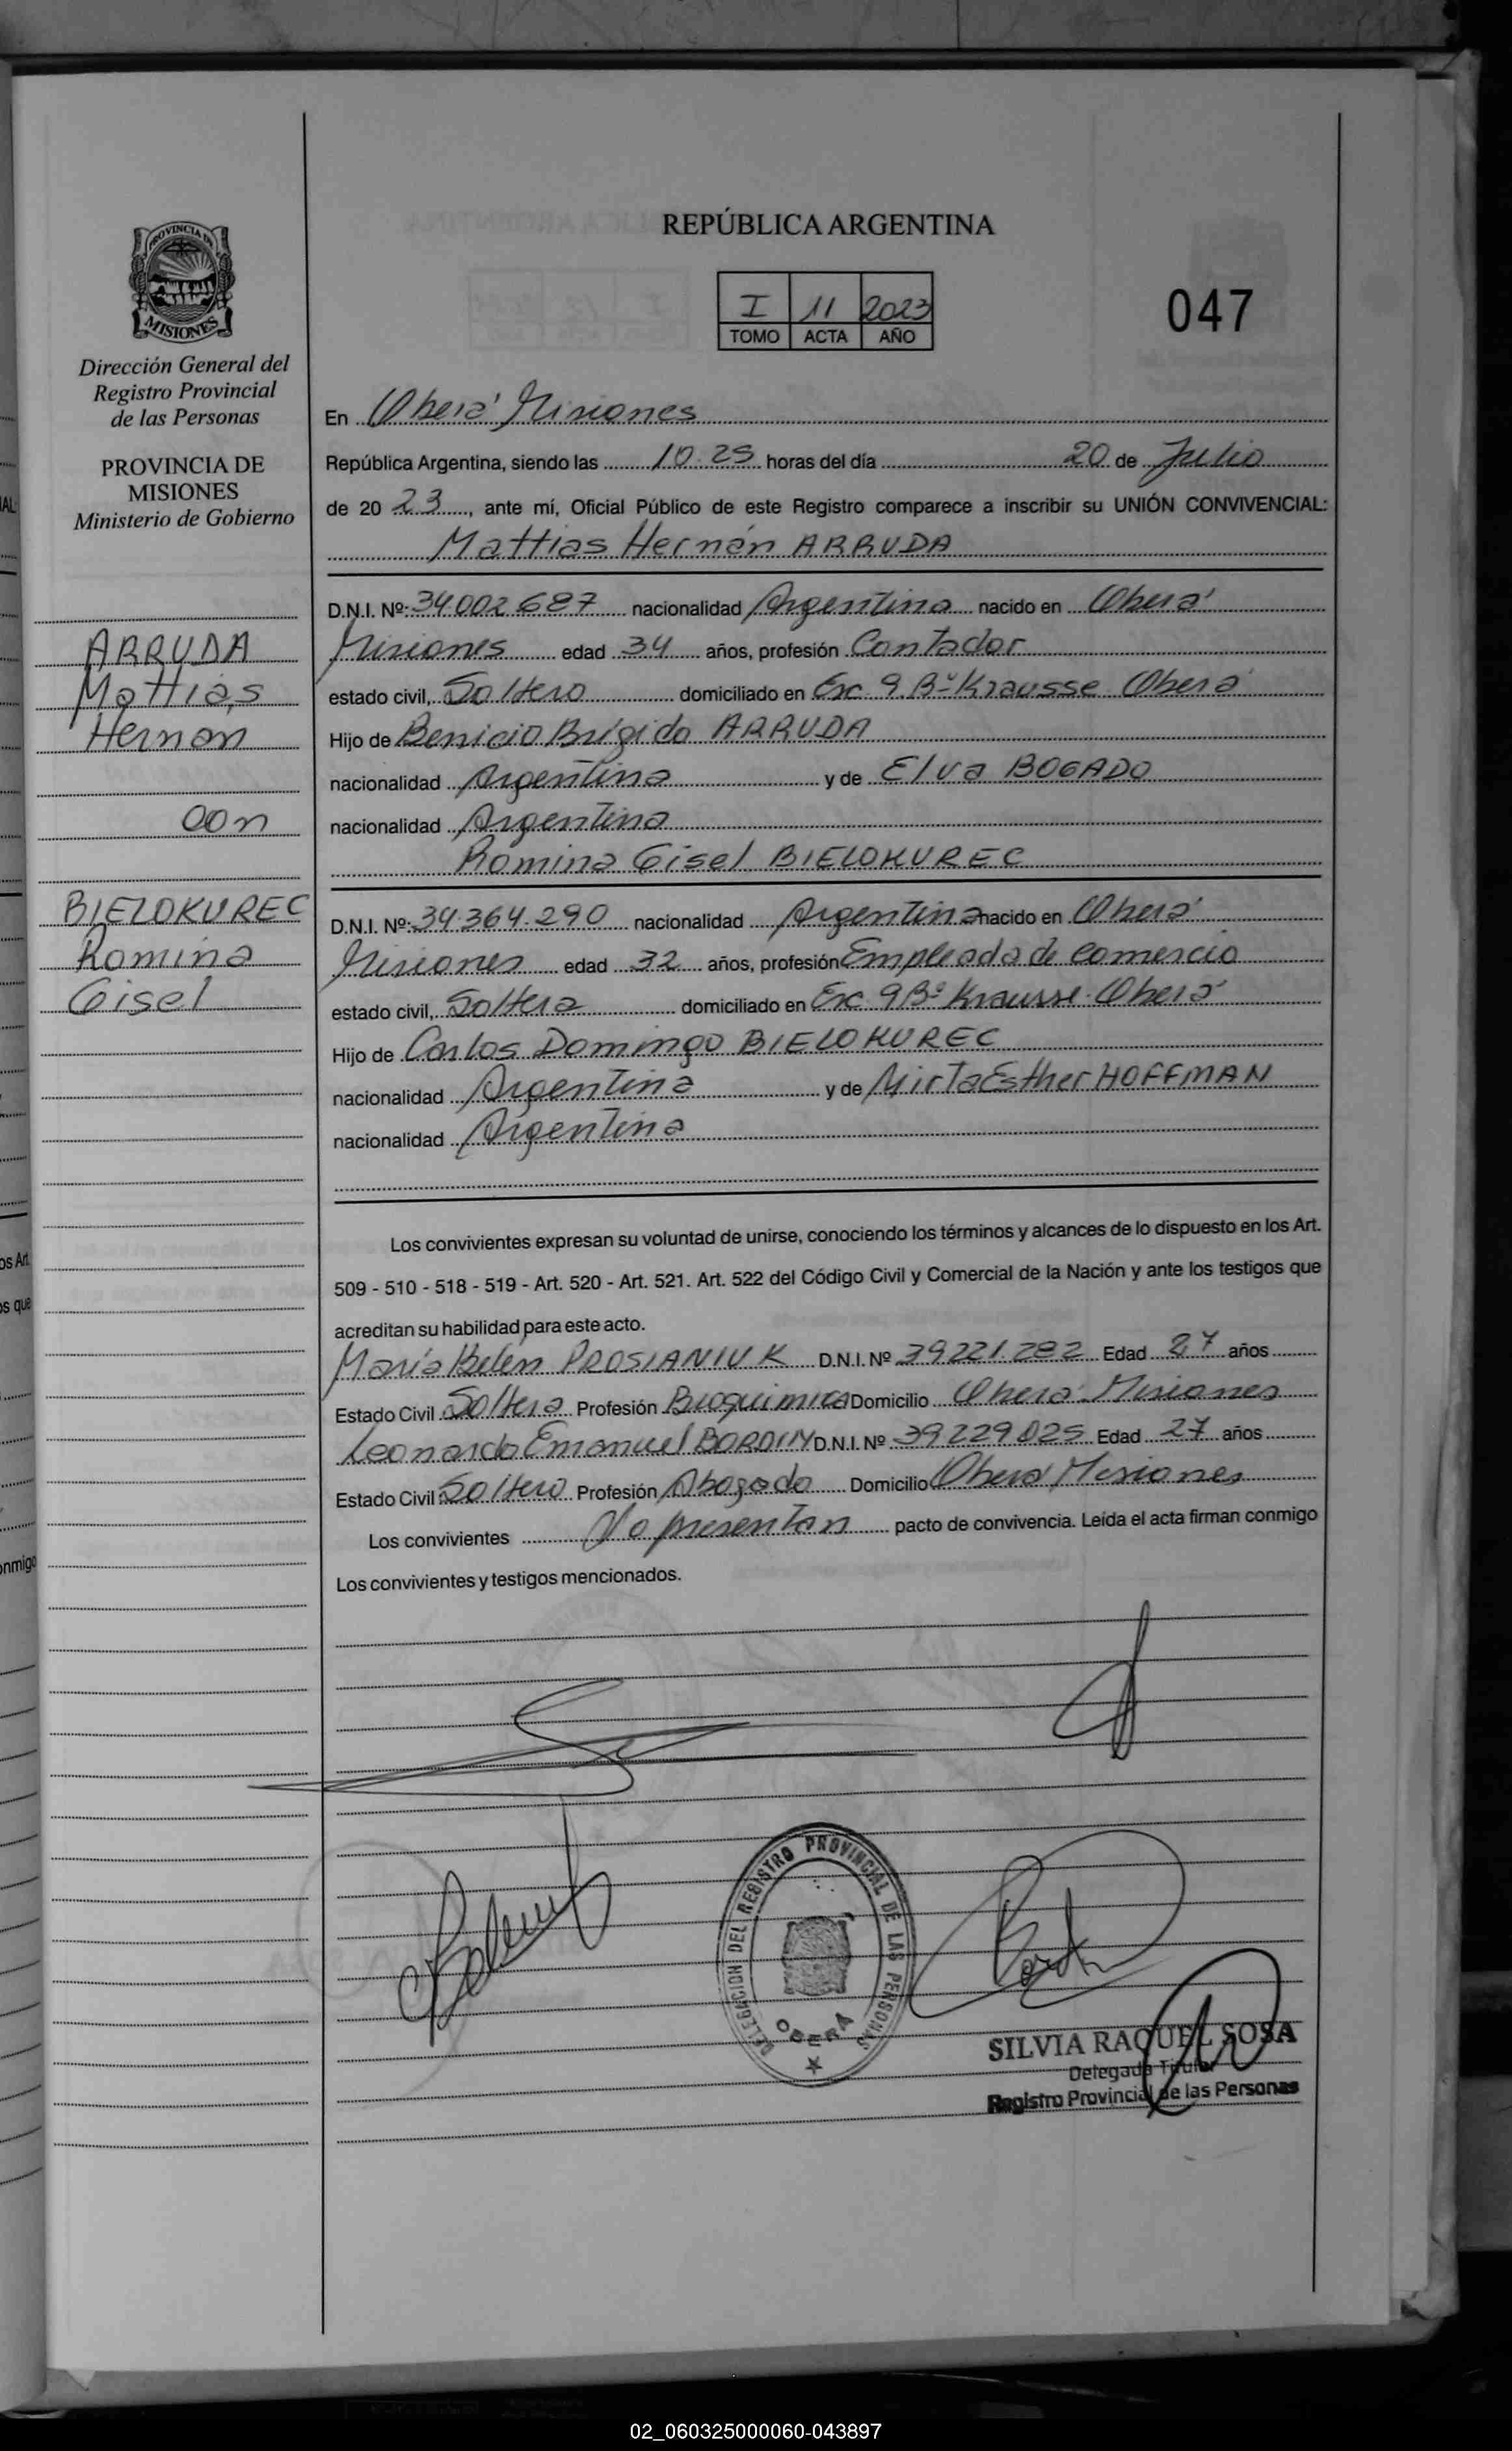 REPÚBLICA ARGENTINA
I 11 2023
TOMO ACTA AÑO
047
PROVINCIA DE
MISIONES
Dirección General del
Registro Provincial
de las Personas
PROVINCIA DE
MISIONES
Ministerio de Gobierno
ARRUDA
Mattias
Hernan
con
BIELOKUREC
Romina
Gisel
En Oberá Misiones
República Argentina, siendo las 10:25 horas del día 20 de Julio
de 20 23, ante mí, Oficial Público de este Registro comparece a inscribir su UNIÓN CONVIVENCIAL:
Mattias Hernán ARRUDA
D.N.I. Nº: 34.002.687 nacionalidad Argentina nacido en Oberá
Misiones edad 34 años, profesión Contador
estado civil, Soltero domiciliado en Esc. 9. Bº Krausse Oberá
Hijo de Benicio Brígido ARRUDA
nacionalidad Argentina y de Elva BOGADO
nacionalidad Argentina
Romina Gisel BIELOKUREC
D.N.I. Nº: 34.364.290 nacionalidad Argentina nacido en Oberá
Misiones edad 32 años, profesión Empleada de comercio
estado civil, Soltera domiciliado en Esc. 9 Bº Krausse. Oberá
Hijo de Carlos Domingo BIELOKUREC
nacionalidad Argentina y de Mirta Esther HOFFMAN
nacionalidad Argentina
Los convivientes expresan su voluntad de unirse, conociendo los términos y alcances de lo dispuesto en los Art.
509 - 510 - 518 - 519 - Art. 520 - Art. 521. Art. 522 del Código Civil y Comercial de la Nación y ante los testigos que
acreditan su habilidad para este acto.
María Belén PROSIANIUK D.N.I. Nº 39.221.282 Edad 27 años
Estado Civil Soltera Profesión Bioquimica Domicilio Oberá Misiones
Leonardo Emanuel D.N.I. Nº 39.229.025 Edad 27 años
Estado Civil Soltero Profesión Abogado Domicilio Oberá Misiones
Los convivientes No presentan pacto de convivencia. Leída el acta firman conmigo
Los convivientes y testigos mencionados.
DELEGACION DEL REGISTRO PROVINCIAL DE LAS PERSONAS
OBERA
SILVIA RAQUEL SOSA
Delegada Titular
Registro Provincial de las Personas
02_060325000060-043897